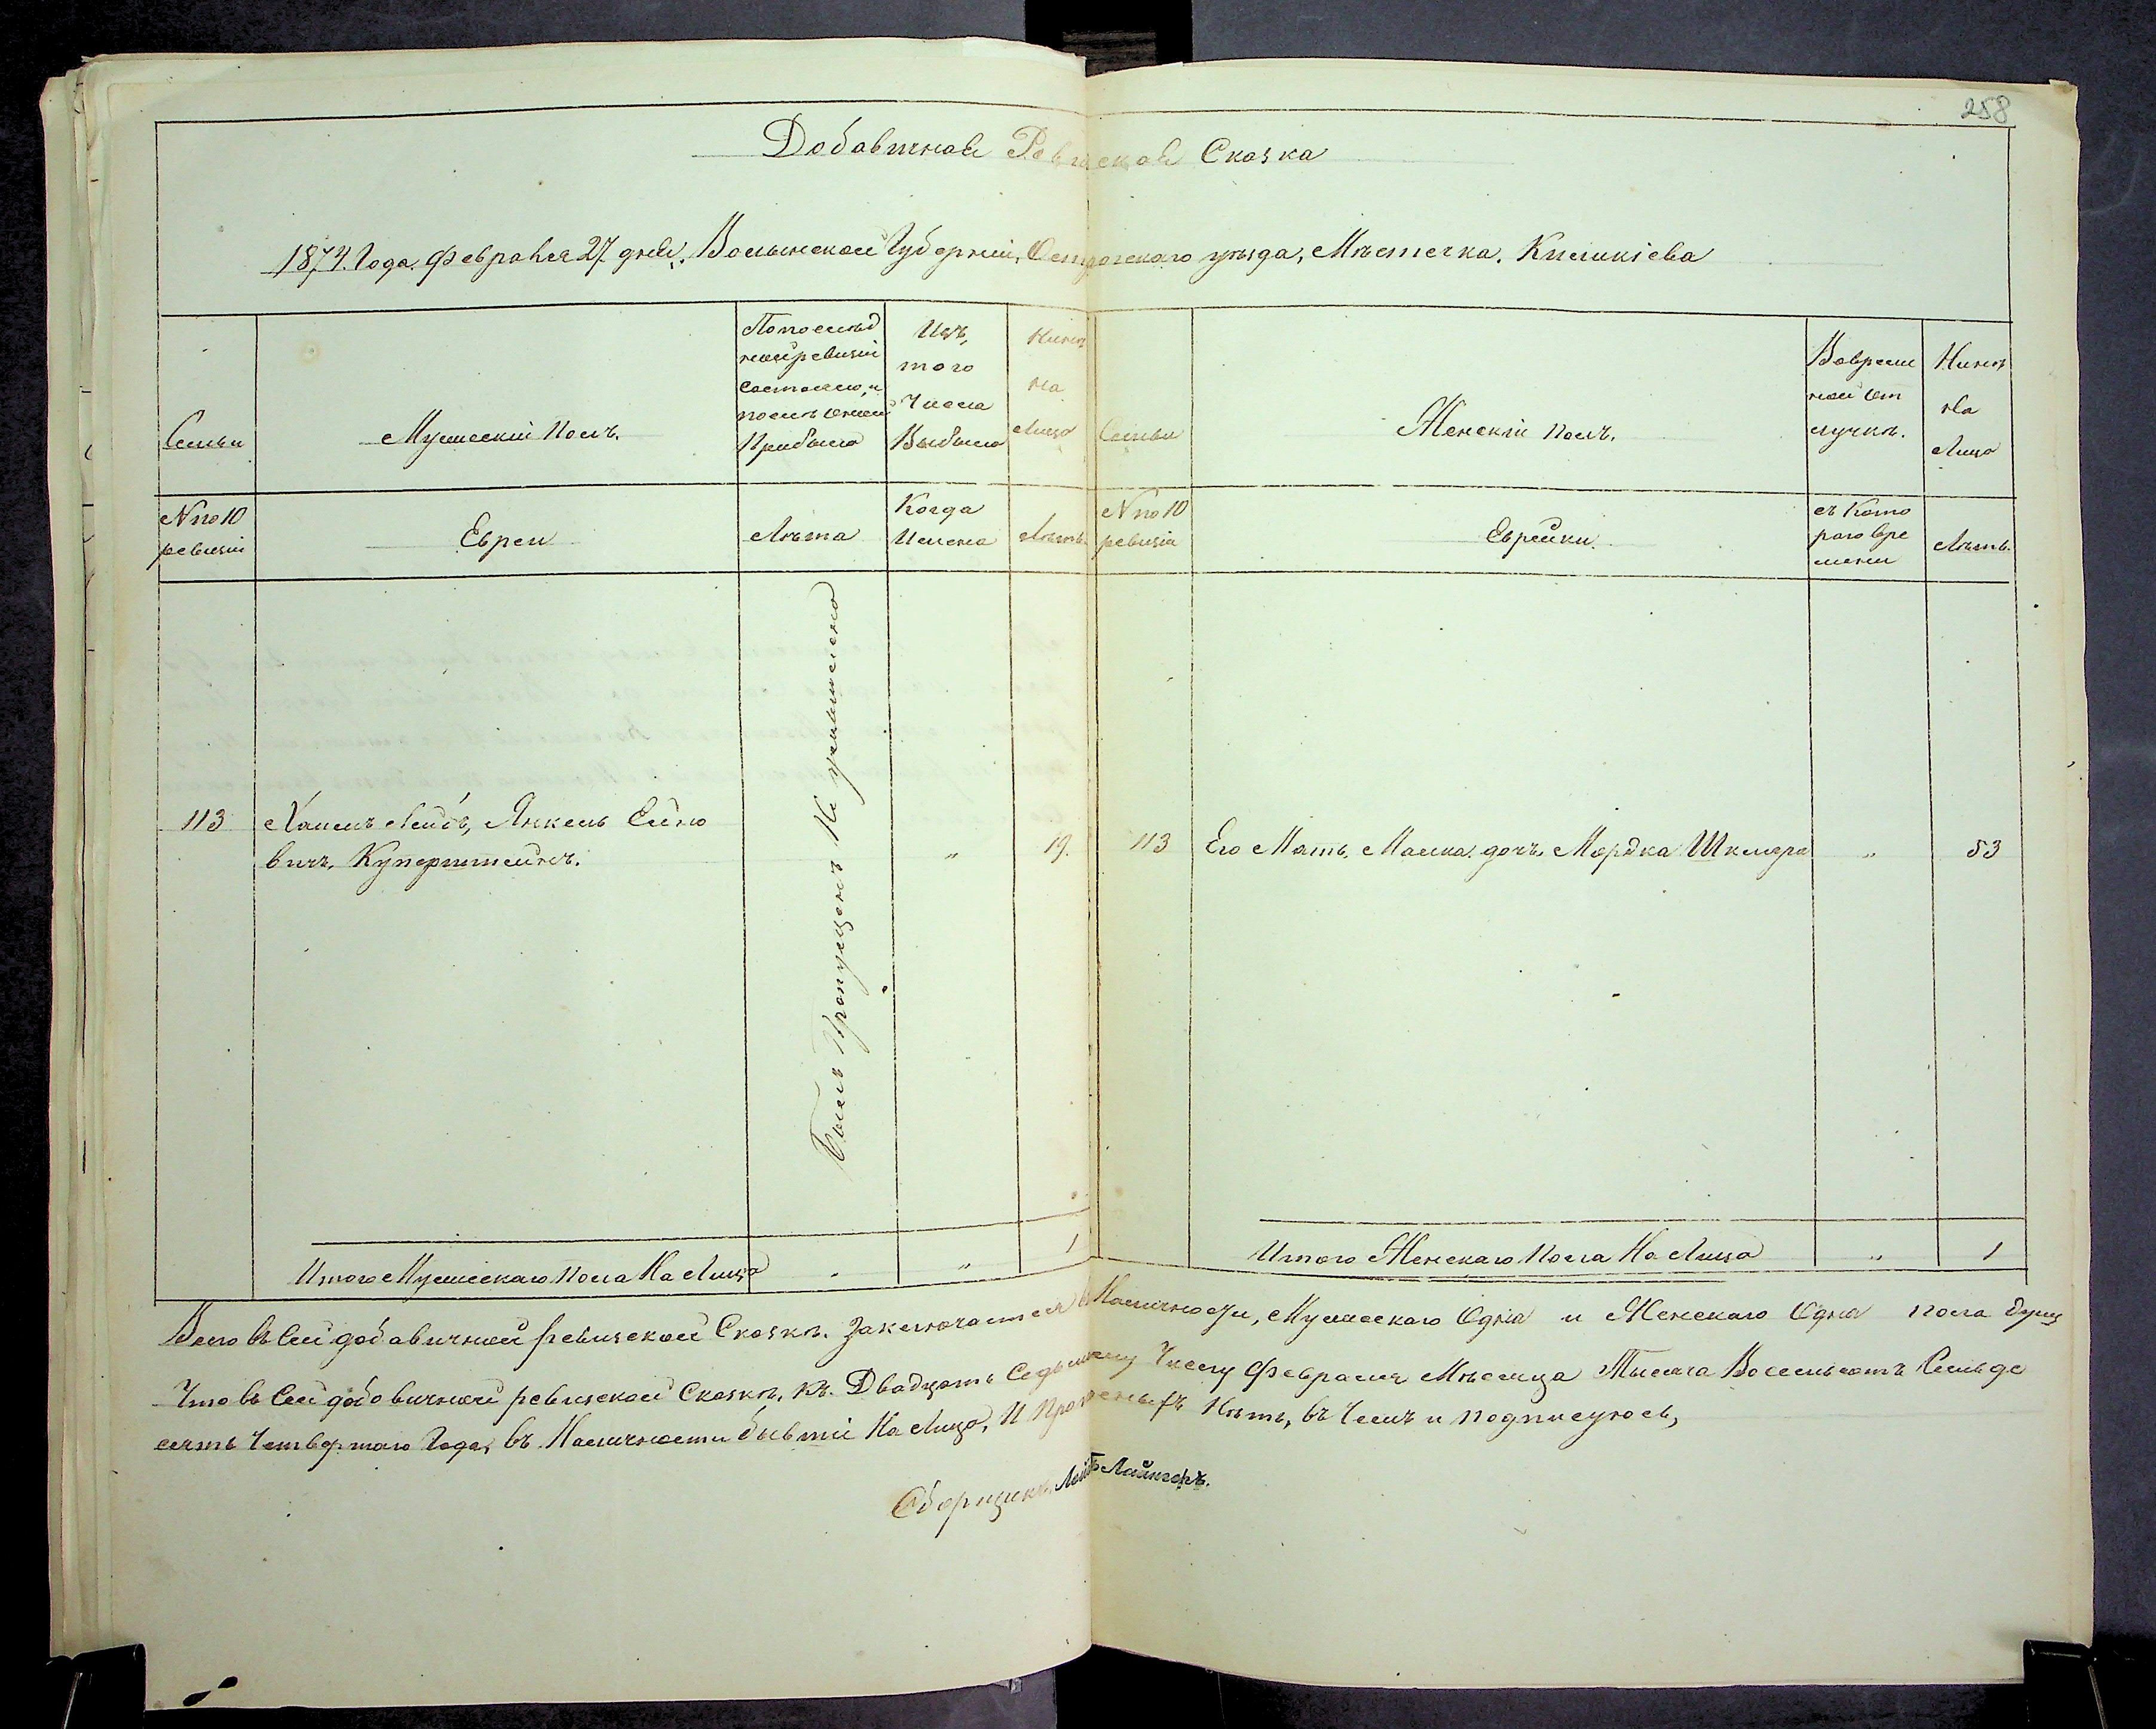 258
Добавичная Ревизская Сказка
1874. Года. Февраля 27 дня, Волынской Губерніи, Острогскаго уѣзда, Мѣстечка. Кпиликіева
Семьи
Мужескій полъ.
По послѣд
ней ревизіи
состояло, и
послѣ оной
Прибыло
Изъ,
того
Числа
Выбыло
Нынѣ
на
Лицо
Семьи
Женскій полъ.
Вовремен
ной от
лучкѣ.
Нынѣ
На
Лицо
№ по 10
ревизіи
Евреи
Лѣта
Когда
Именно
Лѣтъ.
№ по 10
ревизіи
Еврейки.
съ Кото
раго вре
мени
Лѣтъ.
113
Лейбъ, Янкель
вичъ, Куперштейнъ.
Былъ Пропущенъ Не умышленно
„
19.
113
Его Мать, Малка дочь Мордка Шкляра
„
53
Итого Мужескаго пола На Лицо
„
„
1
Итого Женскаго пола На Лицо
„
1
Всего въ сей добавичной ревизской Сказкѣ. Заключается въ Наличности, Мужескаго Одна и Женскаго Одна пола душ
Что въ Сей добовичной ревизской Сказкѣ, къ. Двадцать Седьмому Числу Февраля Мѣсяца Тысяча Восемьсотъ Семьде
сятъ Четвертаго Года, въ Наличности бывшіе На Лицо, И Прописныхъ Нѣтъ, въ Чемъ и подписуюсь,
Сборщикъ, Лейбъ Лайнгоръ.